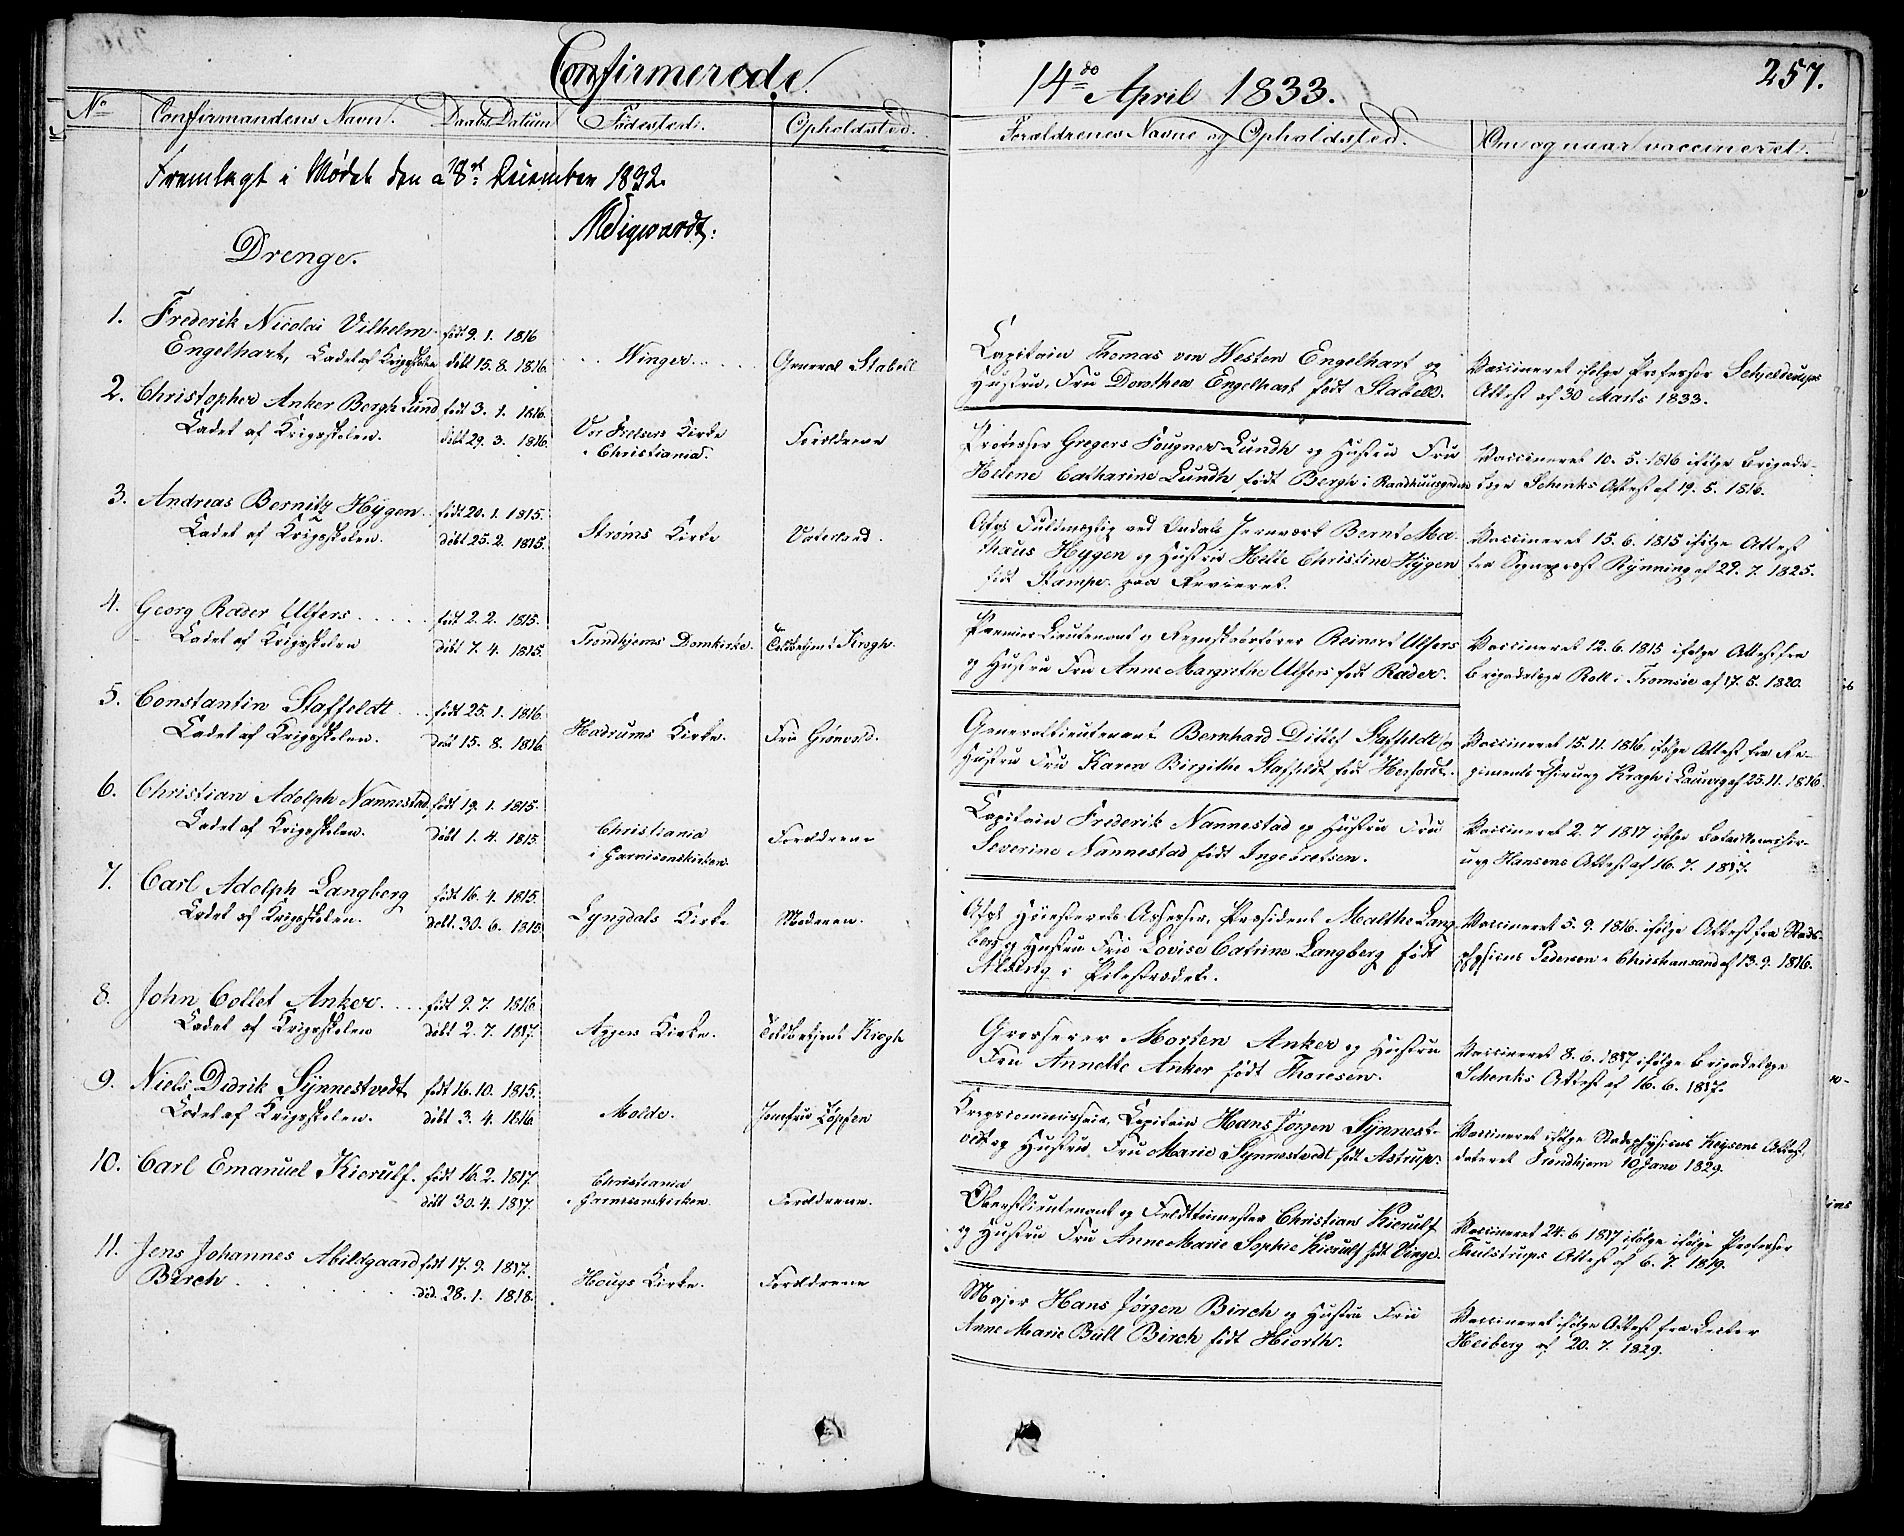 Confirmerede
14de April 1833.
257.
No
Confirmandens Navn.
Daabs Datum
Fødested.
Opholdsted.
Forældrenes Navne og Opholdsted.
Om og naar vaccineret.
Fremlagt i Mødet den 28de December 1832.
Drenge.
1. Frederik Nicolai Vilhelm
Engelhart, Cadet af Krigsskolen
født 9. 1. 1816
døbt 15. 8. 1816.
Winger
General Stabell
Capitain Thomas von Westen Engelhart og
Hustru, Fru Dorothea Engelhart født Stabell.
Vaccineret ifølge Professor Schjelderups
Attest af 30 Marts 1833.
2. Christopher Anker Bergh Lund
Cadet af Krigsskolen.
født 3. 1. 1816.
døbt 29. 3. 1816.
Vor Frelsers Kirke
i Christiania.
Forældrene
Professor Gregers Fougner Lundh og Hustru Fru
Helene Catharine Lundh født Bergh i Raadhuusgaden
Vaccineret 10. 5. 1816 ifølge Brigade-
læge Schenks Attest af 19. 5. 1816.
3. Andreas Bernitz Hÿgen
Cadet af Krigsskolen.
født 20. 1. 1815.
døbt 25. 2. 1815.
Strøms Kirke
Vaterland.
Afg. Fuldmægtig ved Odals Jernværk Bernt Ma-
thæus Hygen og Hustru Helle Christine Hÿgen
født Stampe paa Revieret.
Vaccineret 15. 6. 1815 ifølge Attest
fra Sognepræst Rÿnning af 29. 7. 1825.
4. Georg Rader Ulfers
Cadet af Krigsskolen
født 2. 2. 1815.
døbt 7. 4. 1815.
Trondhjems Domkirke.
Toldbetjent Krogh.
Premier Lieutenant og Regnskabsfører Reinert Ulfers
og Hustru Fru Anne Margrethe Ulfers født Rader.
Vaccineret 12. 6. 1815 ifølge Attest fra
Brigadelæge Roll i Tromsøe af 17. 5. 1820.
5. Constantin Staffeldt
Cadet af Krigsskolen.
født 25. 1. 1816.
døbt 15. 8. 1816.
Hedrums Kirke.
Fru Grønvold.
Generallieutenant Bernhard Ditlef Staffeldt og
Hustru Fru Karen Birgithe Staffeldt født Herfordt.
Vaccineret 15. 11. 1816 ifølge Attest fra Re-
giments Chirurg Kragh i Laurvig af 25. 11. 1816.
6. Christian Adolph Nannestad
Cadet af Krigsskolen.
født 19. 1. 1815.
døbt 1. 4. 1815.
Christiania
i Garnisonskirken.
Forældrene
Capitain Frederik Nannestad og Hustru Fru
Severine Nannestad født Ingebretsen.
Vaccineret 2. 7 1817 ifølge Batailloschir-
urg Hansens Attest af 16. 7. 1817.
7. Carl Adolph Langberg
Cadet af Krigsskolen.
født 16. 4. 1815.
døbt. 30. 6. 1815.
Lyngdals Kirke
Moderen.
Afgt Høiesterets Assessor, Præsident Malthe Lang-
berg og Hustru Fru Lovise Catrine Langberg født
i Pilestrædet.
Vaccineret 5. 9. 1816 ifølge Attest fra Stads-
physicus Pedersen i Christiansand af 13. 9. 1816.
8. John Collet Anker
Cadet af Krigsskolen
født 9. 7. 1816.
døbt 2. 7. 1817.
Agers Kirke.
Toldbetjent Krogh
Grosserer Morten Anker og Hustru
Fru Annette Anker født Thoresen.
Vaccineret 8. 6. 1817 ifølge Brigadelæge
Schenks Attest af 16. 6. 1817.
9. Niels Didrik Sÿnnestvedt
Cadet af Krigsskolen.
født 16. 10. 1815.
døbt 3. 4. 1816
Molde.
Jomfru
Krigscommissair, Capitain Hans Jørgen Sÿnnest-
vedt og Hustru, Fru Marie Synnestvedt født Astrup.
Vaccineret ifølge Stadsphysicus Keysers Attest,
dateret Trondhjem 10 Juni 1829.
10. Carl Emanuel Kierulf.
født 16. 2. 1817
døbt 30. 4. 1817.
Christiania
Garnisonskirken
Forældrene.
Oberstlieutenant og Feldttøimester Christian Kierulf
og Hustru Fru Anne Marie Sophie Kierulf født Vinge.
Vaccineret 24. 6 1817 ifølge ifølge Professor
Thulstrups Attest af 6. 7. 1819.
11. Jens Johannes Abildgaard
Birch
født 17. 9. 1817.
død. 28. 1. 1818.
Hougs Kirke.
Forældrene
Major Hans Jørgen Birch og Hustru Fru
Anne Marie Bull Birch født Hiorth.
Vaccineret ifølge Attest fra Lector
Heiberg af 20. 7. 1829.